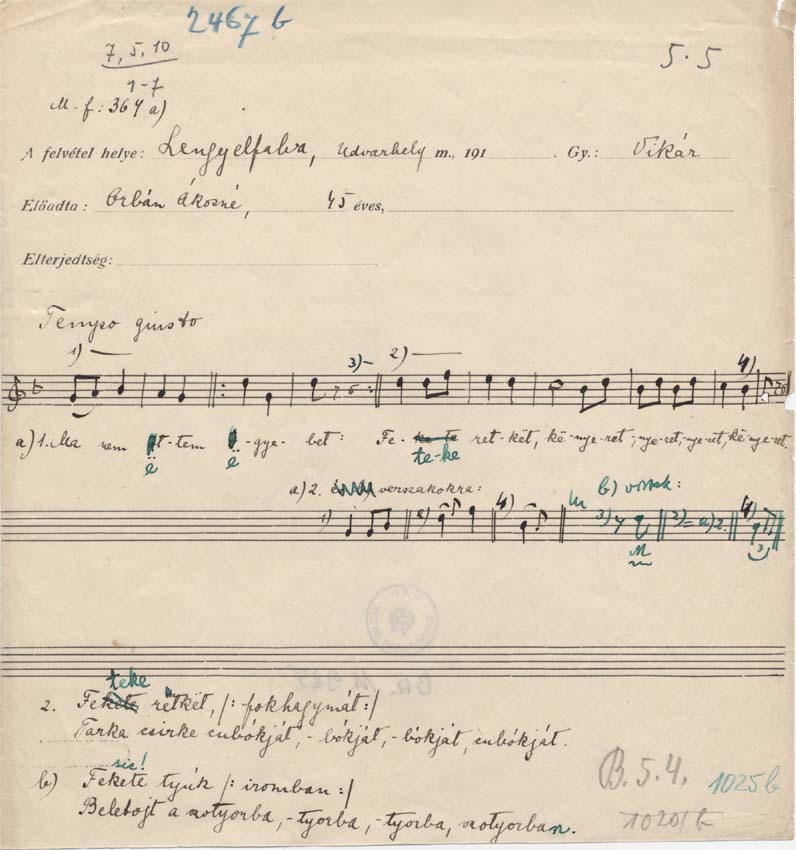 2467 b
7, 5, 10
1-7
5.5
M. f: 364 a)
A felvétel helye: Lengyelfalva, Udvarhely m., 191 . Gy.: Vikár
Előadta: Orbán Ákosné, 45 éves,
Elterjedtség:
Tempo giusto
1) 3) 2) 4)
a) 1. Ma nem ët-tem ë-gye-bet: Fe-te-ke ret-két, kë-nye-ret, -nye-ret, -nye-ret, kë-nye-ret.
a) 2. verszakokra: b) versek:
1) 2) 4) 3) 2) = a) 2. 4)
M
3
teke
2. Fekete rëtkët, /: fokhagymát :/
Tarka csirke cubókját, - bókját, - bókját, cubókját.
sic!
b) Fekete tyúk /: iromban :/
Belebojt a szotyorba, - tyorba, - tyorba, szotyorban.
B. 5. 4. 1025 b
1020/b